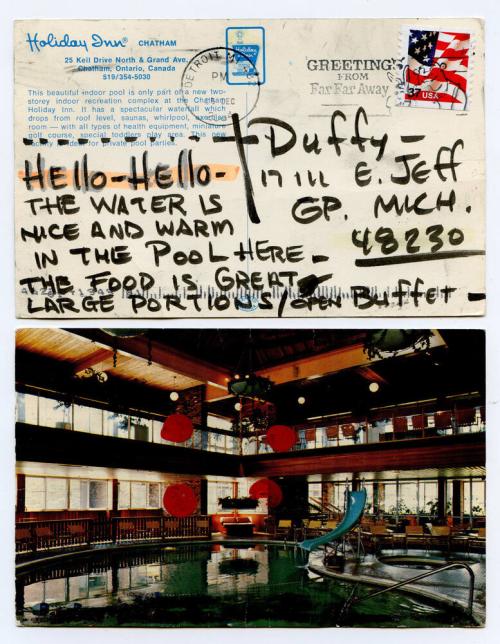 Holiday Inn® CHATHAM
25 Keil Drive North & Grand Ave.
Chatham, Ontario, Canada
519/354-5030
This beautiful indoor pool is only part of a new two-
storey indoor recreation complex at the Chatham
Holiday Inn. It has a spectacular waterfall which
drops from roof level, saunas, whirlpool, exercise
room — with all types of health equipment, miniature
golf course, special toddlers play area. This new
facility is ideal for private pool parties.
Holiday Inn
DETROIT
PM
DEC
GREETINGS
FROM
Far Far Away
37
USA
Duffy -
17111 E. Jeff
GP. MICH.
48230
Hello-Hello-
THE WATER IS
NICE AND WARM
IN THE POOL HERE -
THE FOOD IS GREAT
LARGE PORTIONS/OPEN BUFFET -